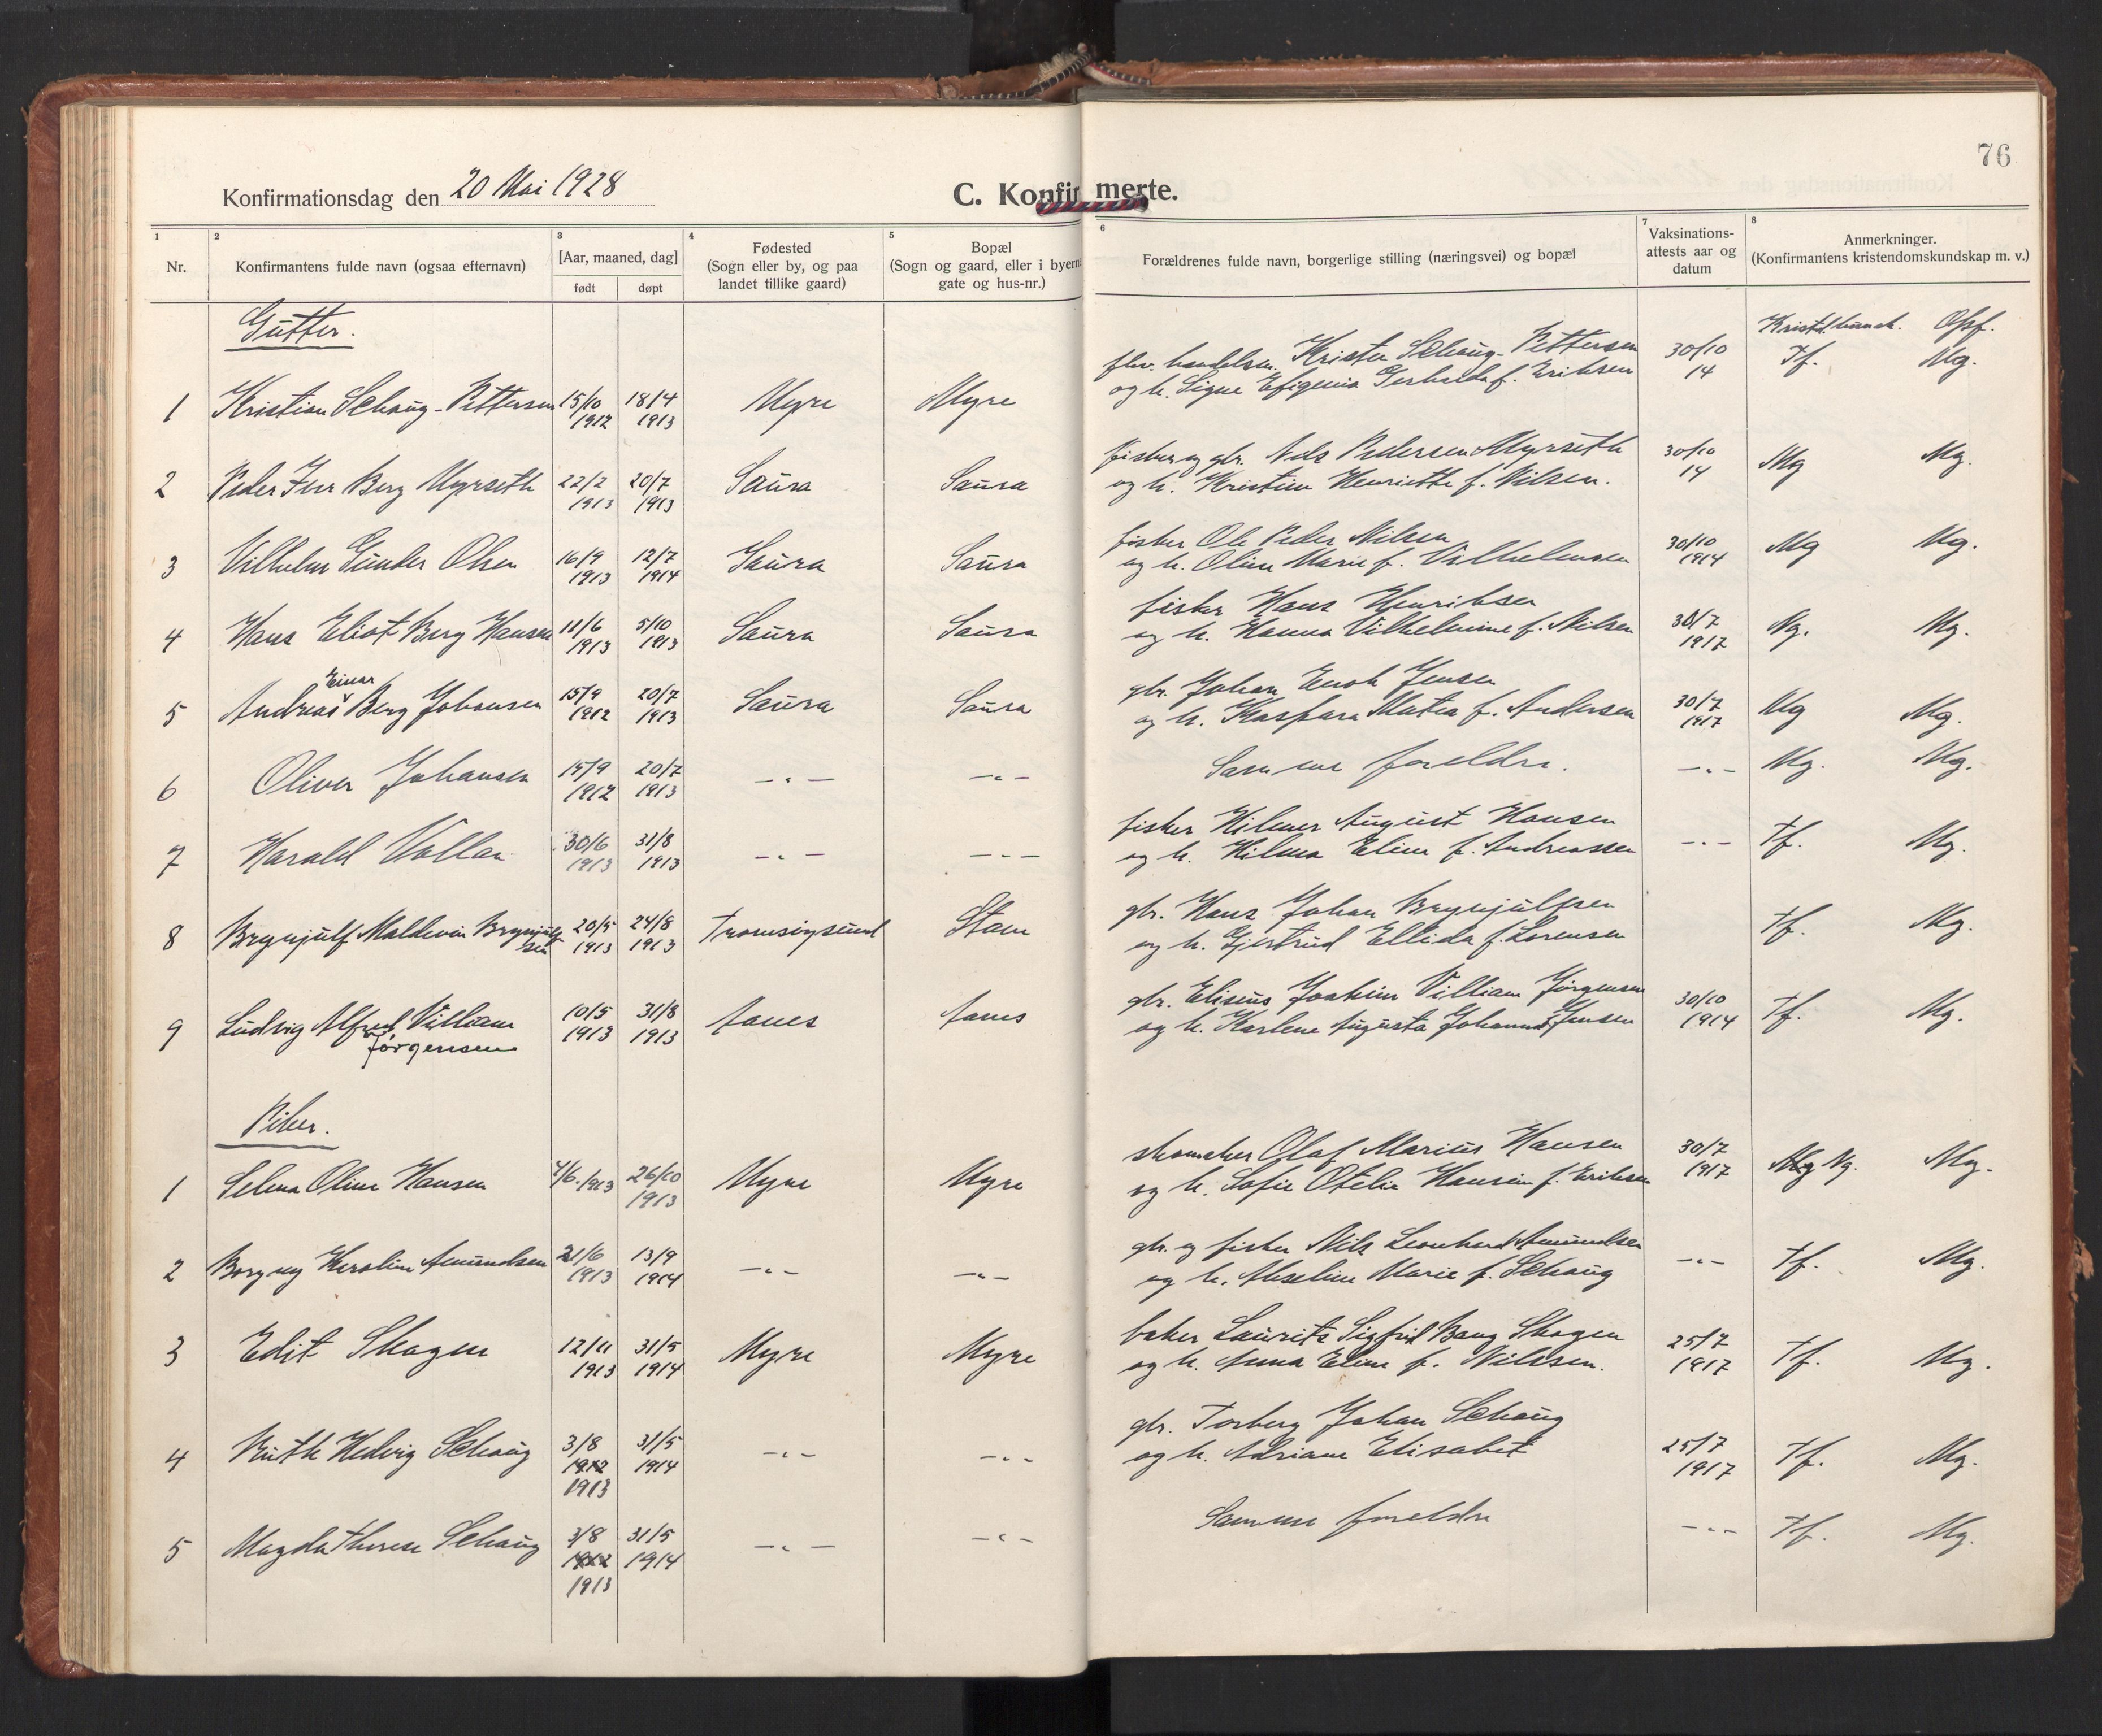 76
Konfirmationsdag den 20 Mai 1928
C. Konfirmerte.
1 2 3 4 5 6 7 8
Nr. Konfirmantens fulde navn (ogsaa efternavn) [Aar, maaned, dag] født døpt
Fødested
(Sogn eller by, og paa
landet tillike gaard)
Bopæl
(Sogn og gaard, eller i byern
gate og hus-nr.)
Forældrenes fulde navn, borgerlige stilling (næringsvei) og bopæl
Vaksinations-
attests aar og
datum
Anmerkninger.
(Konfirmantens kristendomskundskap m. v.)
Gutter.
Kristd.kunnsk. Opf.
1 Kristian Schaug-Pettersen 15/10 1912 18/4 1913 Myre Myre
flv. handelsm. Krister Schaug-Pettersen
og h. Signe Efigenia Gerharda f. Eriksen 30/10 14 Tf. Mg.
2 Peder Iver Berg Myrseth 22/2 1913 20/7 1913 Saura Saura
fisker og gbr. Nils Pedersen Myrseth
og h. Kristine Henriette f. Nilsen. 30/10 14 Mg Mg.
3 Vilhelm Gunder Olsen 16/9 1913 12/7 1914 Saura Saura
fisker Ole Peder Nilsen
og h. Oline Marie f. Vilhelmsen 30/10 1914 Mg Mg.
4 Hans Eliot Berg Hansen 11/6 1913 5/10 1913 Saura Saura
fisker Hans Henriksen
og h. Hanna Vilhelmine f. Nilsen 30/7 1917 Ng. Mg.
5 Andreas Einar Berg Johansen 15/9 1912 20/7 1913 Saura Saura
gbr. Johan Enok Jensen
og h. Kaspara Matea f. Andersen 30/7 1917 Mg Mg.
6 Oliver Johansen 15/9 1912 20/7 1913 -"- -"-
Samme foreldre. -"- Mg. Mg.
7 Harald Vollan 30/6 1913 31/8 1913 -"- -"-
fisker Hilmer August Hansen
og h. Hilma Eline f. Andreassen -"- Tf. Mg.
8 Brynjulf Maldevin Brynjulf-
sen 20/5 1913 24/8 1913 Tromsøysund Stam
gbr. Hans Johan Brynjulfsen
og h. Gjertrud Ellida f. Lorensen Tf. Mg.
9 Ludvig Alfred Villiam
Jørgensen 10/5 1913 31/8 1913 Aanes Aanes
gbr. Eliseus Joakim Villiam Jørgensen
og h. Karlene Augusta Johanna f. Jensen 30/10 1914 Tf. Mg.
Piker.
1 Selma Oline Hansen 4/6 1913 26/10 1913 Myre Myre
skomaker Olaf Marius Hansen
og h. Sofie Otelie Hansen f. Eriksen 30/7 1917 Mg Ng. Mg.
2 Borgny Karoline Amundsen 21/6 1913 13/9 1914 -"- -"-
gbr. og fisker Nils Leonhard Amundsen
og h. Anseline Marie f. Schaug -"- Tf. Mg.
3 Edit Skogen 12/11 1913 31/5 1914 Myre Myre
baker Laurits Sigfrid Bang Skogen
og h. Anna Eline f. Nilssen. 25/7 1917 Tf. Mg.
4 Ruth Hedvig Schaug 3/8 1912 1913 31/5 1914 -"- -"-
gbr. Torberg Johan Schaug
og h. Adriane Elisabet 25/7 1917 Tf. Mg.
5 Magda Therese Schaug 3/8 1912 1913 31/5 1914 -"- -"-
Samme foreldre -"- Tf. Mg.